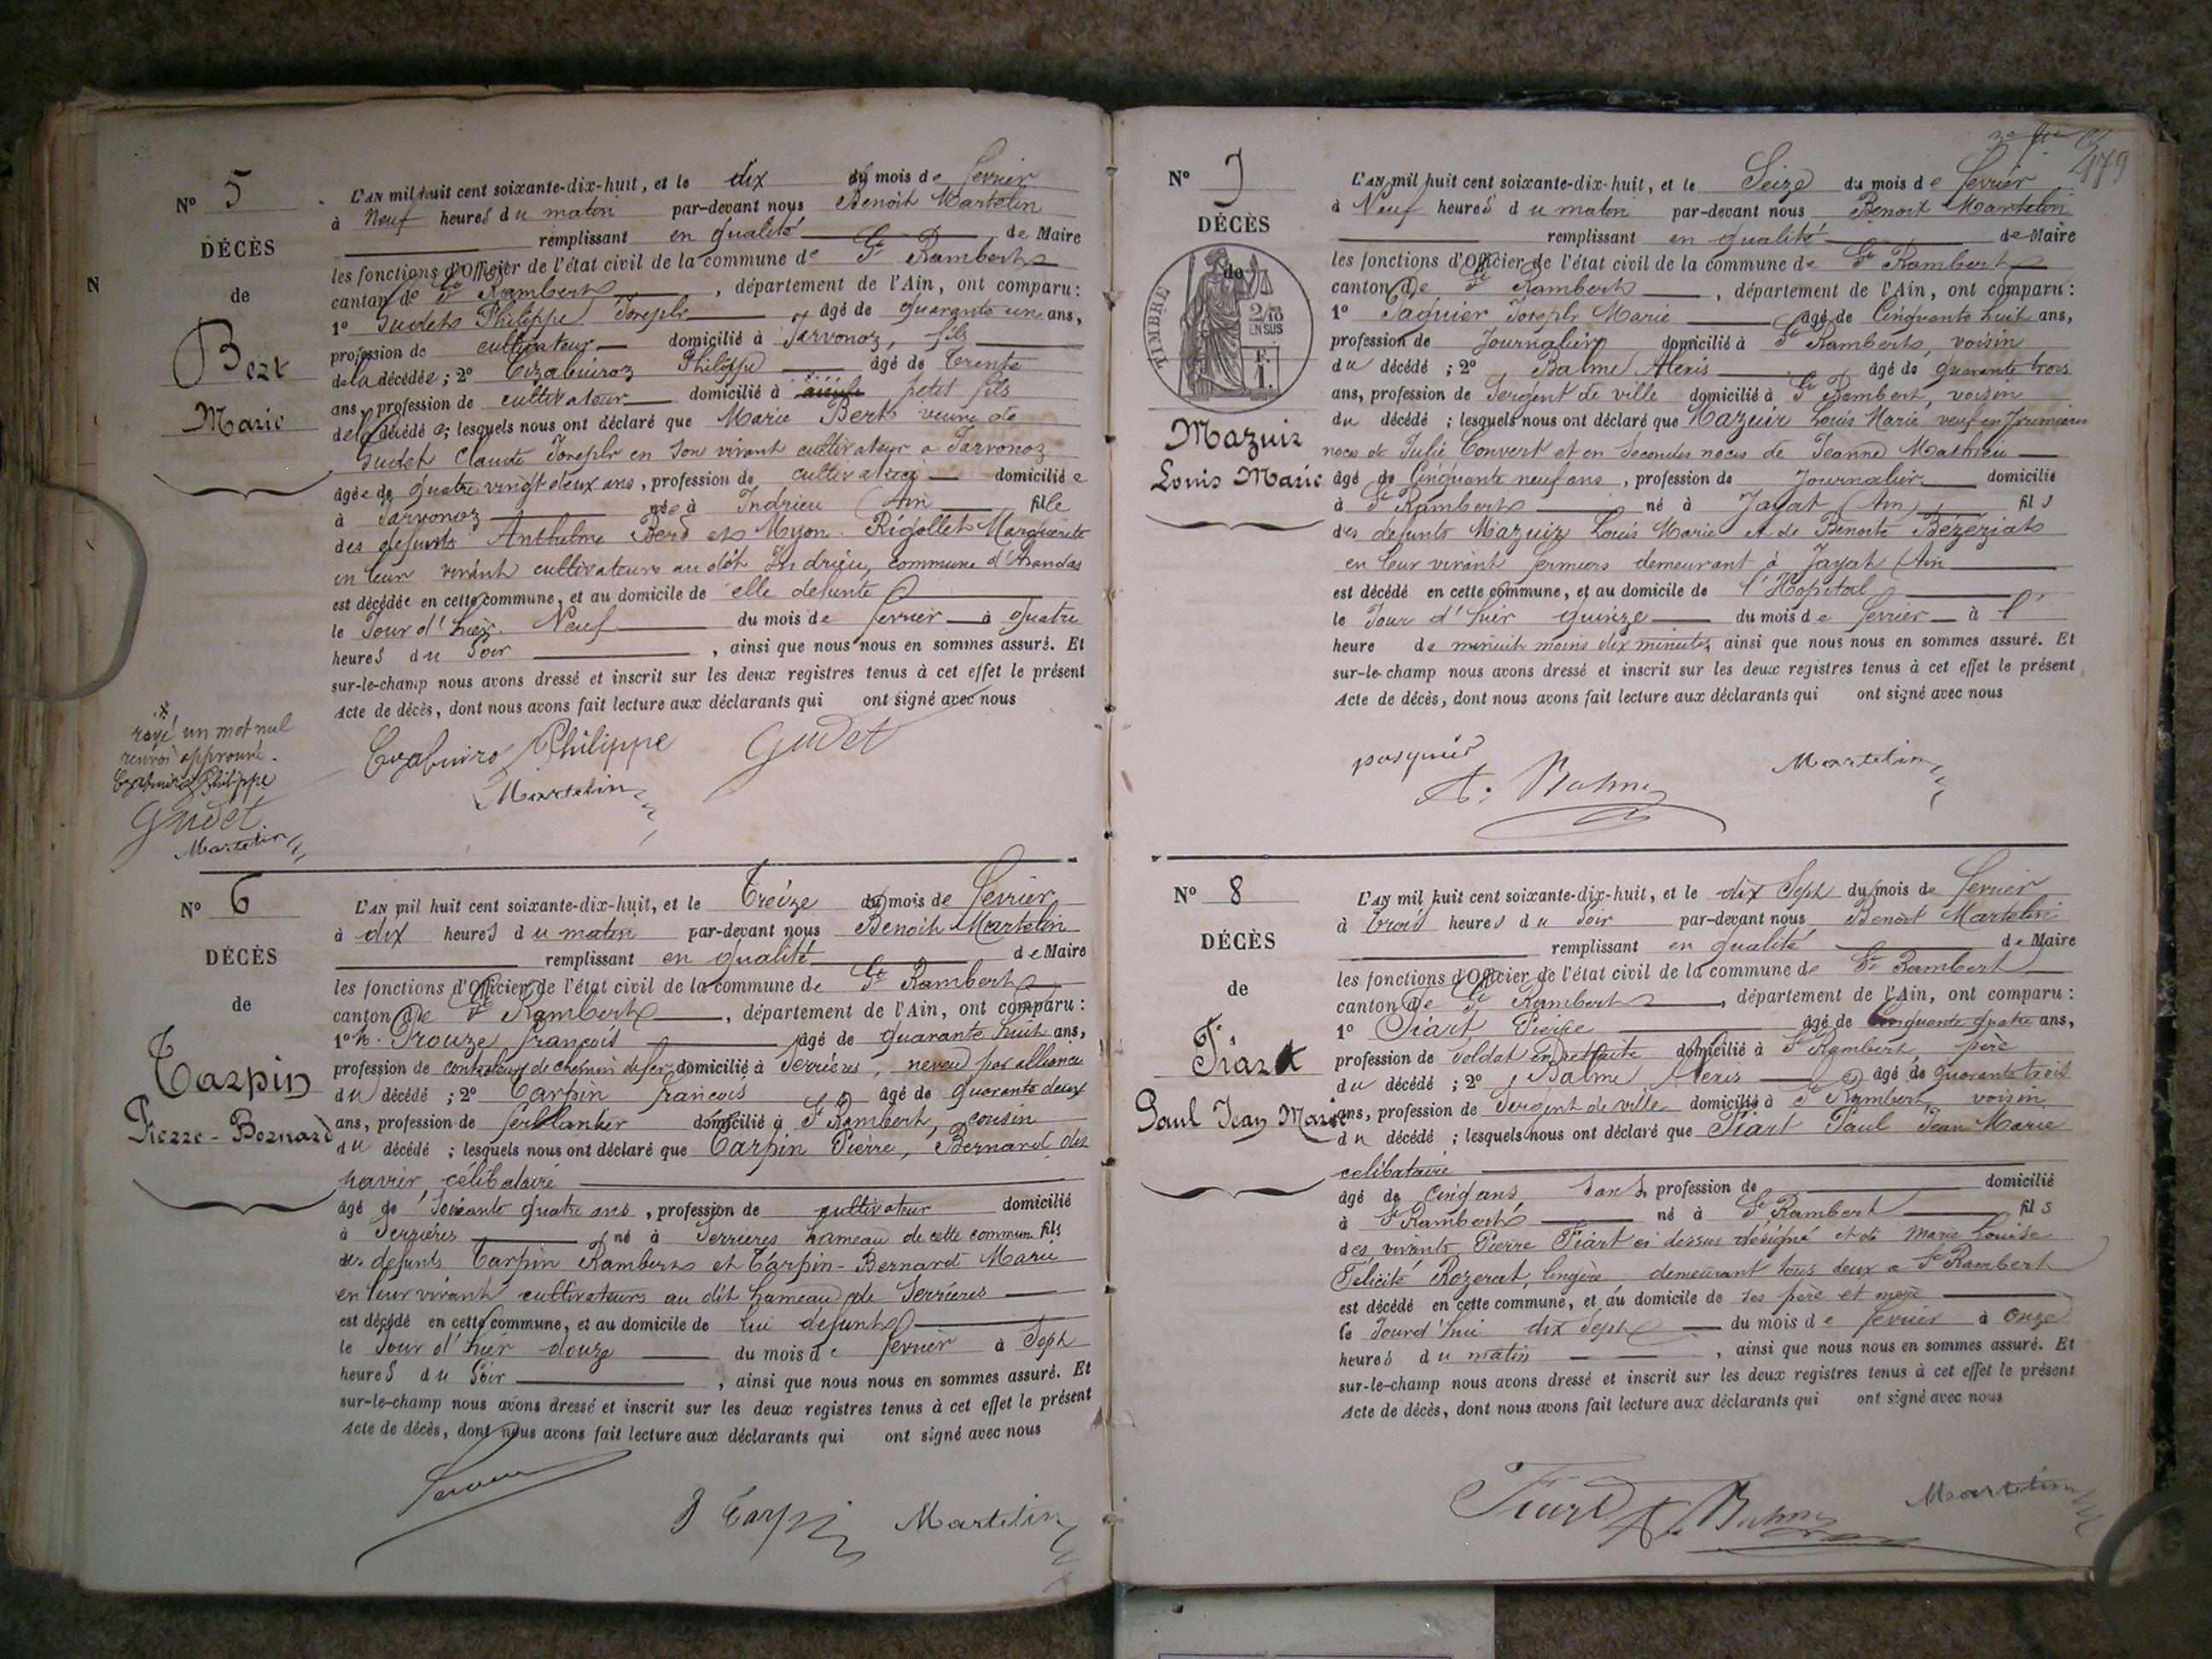 N
Nº 5
DÉCÈS
de
Bert
Marie
L'AN mil huit cent soixante-dix-huit, et le dix du mois de fevrier
à Neuf heures du matin par-devant nous Benoit Martelin
remplissant en qualité de Maire
les fonctions d'Officier de l'état civil de la commune de St Rambert
canton de St Rambert, département de l'Ain, ont comparu :
1º Gudet Philippe Joseph âgé de quarante un ans,
profession de cultivateur domicilié à Javornoz, fils
de la décédée ; 2º Philippe âgé de trente
ans, profession de cultivateur domicilié à petit fils
de la décédée ; lesquels nous ont déclaré que Marie Bert veuve de
Gudet Claude Joseph en son vivant cultivateur a Javornoz
âgée de quatre vingt deux ans, profession de cultivatrice domiciliée
à Javornoz née à Indrieu (Ain fille
des defunts Anthelme Bert et Myon Rigollet Marguerite
en leur vivant cultivateurs au dit Indrieu, commune d'Arandas
est décédée en cette commune, et au domicile de elle defunte
le Jour d'hier Neuf du mois de fevrier à quatre
heures du Soir, ainsi que nous nous en sommes assuré. Et
sur-le-champ nous avons dressé et inscrit sur les deux registres tenus à cet effet le présent
Acte de décès, dont nous avons fait lecture aux déclarants qui ont signé avec nous
rayé un mot nul
renvoi approuvé.
Philippe
Gudet
Martelin
Philippe Gudet
Martelin
Nº 6
DÉCÈS
de
Tarpin
Pierre-Bernard
L'AN mil huit cent soixante-dix-huit, et le Treize du mois de fevrier
à dix heures du matin par-devant nous Benoit Martelin
remplissant en qualité de Maire
les fonctions d'Officier de l'état civil de la commune de St Rambert
canton de St Rambert, département de l'Ain, ont comparu :
1º françois âgé de quarante huit ans,
profession de controleur de chemin de fer domicilié à Serrières, neveu par alliance
du décédé ; 2º Tarpin francois âgé de quarante deux
ans, profession de ferblantier domicilié à St Rambert, cousin
du décédé ; lesquels nous ont déclaré que Tarpin Pierre, Bernard dit
célibataire
âgé de Soixante quatre ans, profession de cultivateur domicilié
à Serrières né à Serrieres hameau de cette commune fils
des defunts Tarpin Rambert et Tarpin-Bernard Marie
en leur vivant cultivateurs au dit hameau de Serrières
est décédé en cette commune, et au domicile de lui défunt
le Jour d'hier douze du mois de fevrier à Sept
heures du Soir, ainsi que nous nous en sommes assuré. Et
sur-le-champ nous avons dressé et inscrit sur les deux registres tenus à cet effet le présent
Acte de décès, dont nous avons fait lecture aux déclarants qui ont signé avec nous
Martelin
479
Nº 7
DÉCÈS
de
TIMBRE
2/10
EN SUS
F.
1.
Mazuir
Louis Marie
L'AN mil huit cent soixante-dix-huit, et le Seize du mois de fevrier
à Neuf heures du matin par-devant nous Benoit Martelin
remplissant en qualité de Maire
les fonctions d'Officier de l'état civil de la commune de St Rambert
canton de St Rambert, département de l'Ain, ont comparu :
1º Paquier Joseph Marie âgé de Cinquante huit ans,
profession de Journalier domicilié à St Rambert, voisin
du décédé ; 2º Balme Alexis âgé de quarante trois
ans, profession de Sergent de ville domicilié à St Rambert, voisin
du décédé ; lesquels nous ont déclaré que Mazuir Louis Marie veuf en Premières
noces de Julie Convert et en Secondes noces de Jeanne Mathieu
âgé de Cinquante neuf ans, profession de Journalier domicilié
à St Rambert né à Jayat (Ain) fils
des defunts Mazuir Louis Marie et de Benoite Bézeriat
en leur vivant fermiers demeurant à Jayat (Ain
est décédé en cette commune, et au domicile de l'Hopital
le Jour d'hier quinze du mois de fevrier à l'
heure de minuit moins dix minutes, ainsi que nous nous en sommes assuré. Et
sur-le-champ nous avons dressé et inscrit sur les deux registres tenus à cet effet le présent
Acte de décès, dont nous avons fait lecture aux déclarants qui ont signé avec nous
pasquier
Martelin
A. Balme
Nº 8
DÉCÈS
de
Fiart
Paul Jean Marie
L'AN mil huit cent soixante-dix-huit, et le dix Sept du mois de fevrier
à trois heures du Soir par-devant nous Benoit Martelin
remplissant en qualité de Maire
les fonctions d'Officier de l'état civil de la commune de St Rambert
canton de St Rambert, département de l'Ain, ont comparu :
1º Fiart Pierre âgé de Cinquante quatre ans,
profession de Soldat en retraite domicilié à St Rambert, père
du décédé ; 2º Balme Alexis âgé de quarante trois
ans, profession de Sergent de ville domicilié à St Rambert, voisin
du décédé ; lesquels nous ont déclaré que Fiart Paul Jean Marie
celibataire
âgé de cinq ans Sans profession de domicilié
à St Rambert né à St Rambert fils
des vivants Pierre Fiart ci dessus désigné et de Marie Louise
Félicité Rozerat, lingère, demeurant tous deux a St Rambert
est décédé en cette commune, et au domicile de ses père et mère
le Jourd'hui dix Sept du mois de fevrier à Onze
heures du matin, ainsi que nous nous en sommes assuré. Et
sur-le-champ nous avons dressé et inscrit sur les deux registres tenus à cet effet le présent
Acte de décès, dont nous avons fait lecture aux déclarants qui ont signé avec nous
Fiart A. Balme Martelin